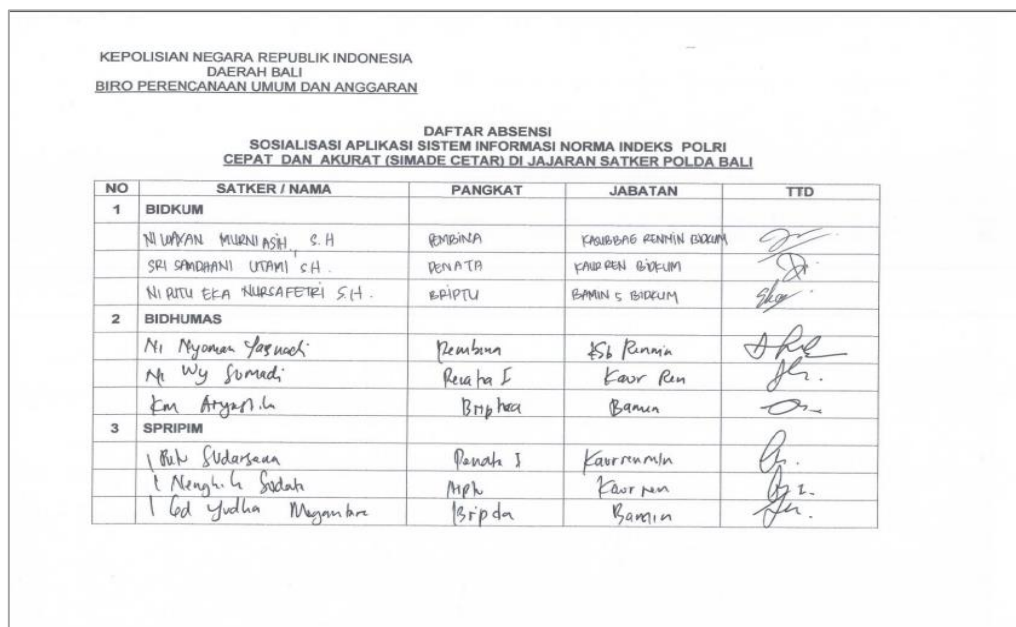 KEPOLISIAN NEGARA REPUBLIK INDONESIA
DAERAH BALI
BIRO PERENCANAAN UMUM DAN ANGGARAN
DAFTAR ABSENSI
SOSIALISASI APLIKASI SISTEM INFORMASI NORMA INDEKS POLRI
CEPAT DAN AKURAT (SIMADE CETAR) DI JAJARAN SATKER POLDA BALI
NO SATKER / NAMA PANGKAT JABATAN TTD
1 BIDKUM
NI WAYAN MURNIASIH, S.H PEMBINA KASUBBAG RENMIN BIDKUM
SRI SANDHANI UTAMI SH. PENATA KAUR REN BIDKUM
NI PUTU EKA NURSAFETRI S.H. BRIPTU BAMIN 5 BIDKUM
2 BIDHUMAS
Ni Nyoman Pembina Renmin
Ni Wy Sumadi Kaur Ren
Km Bamin
3 SPRIPIM
I Putu Sudarsana Penata I Kaurrenmin
I Kaur ren
I Gd Yudha Bripda Bamin